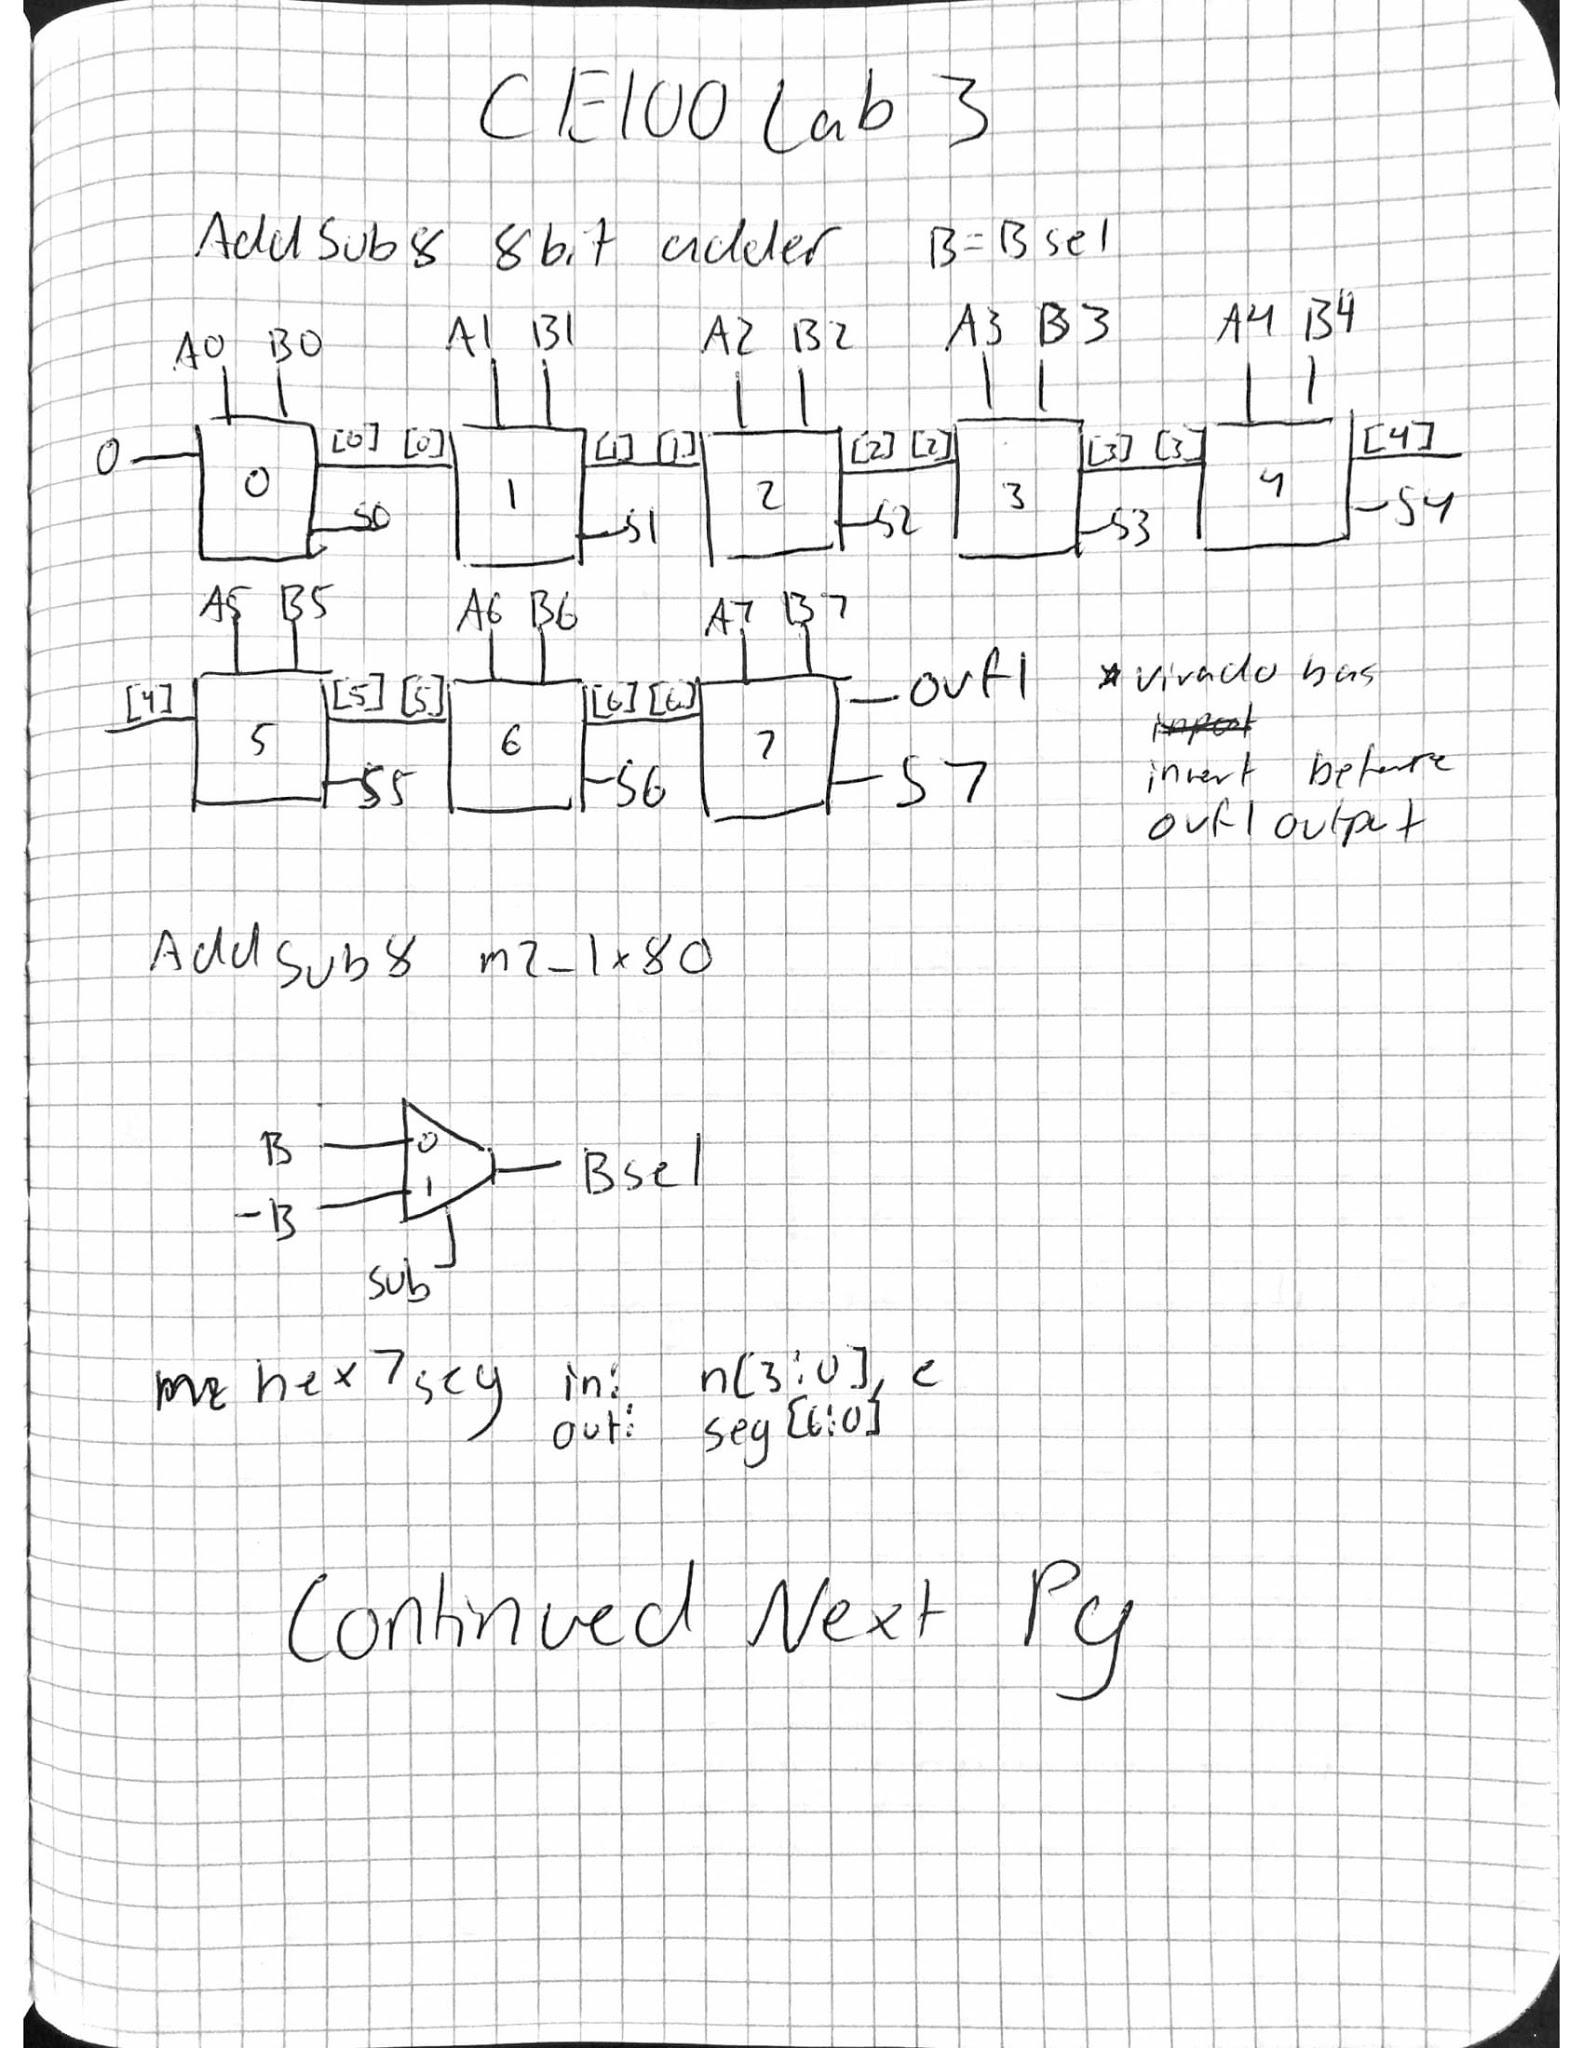 CE100 Lab 3
AddSub8 8bit adder B=Bsel
A0 B0 A1 B1 A2 B2 A3 B3 A4 B4
0 0 [0] [0] 1 [1] [1] 2 [2] [2] 3 [3] [3] 4 [4]
S0 S1 S2 S3 S4
A5 B5 A6 B6 A7 B7
[4] 5 [5] [5] 6 [6] [6] 7 ovfl
S5 S6 S7
* has
input
invert before
ovfl output
AddSub8 m2_1x8
B 0
-B 1
Bsel
sub
hex7seg in: n[3:0], e
out: seg[6:0]
Continued Next Pg